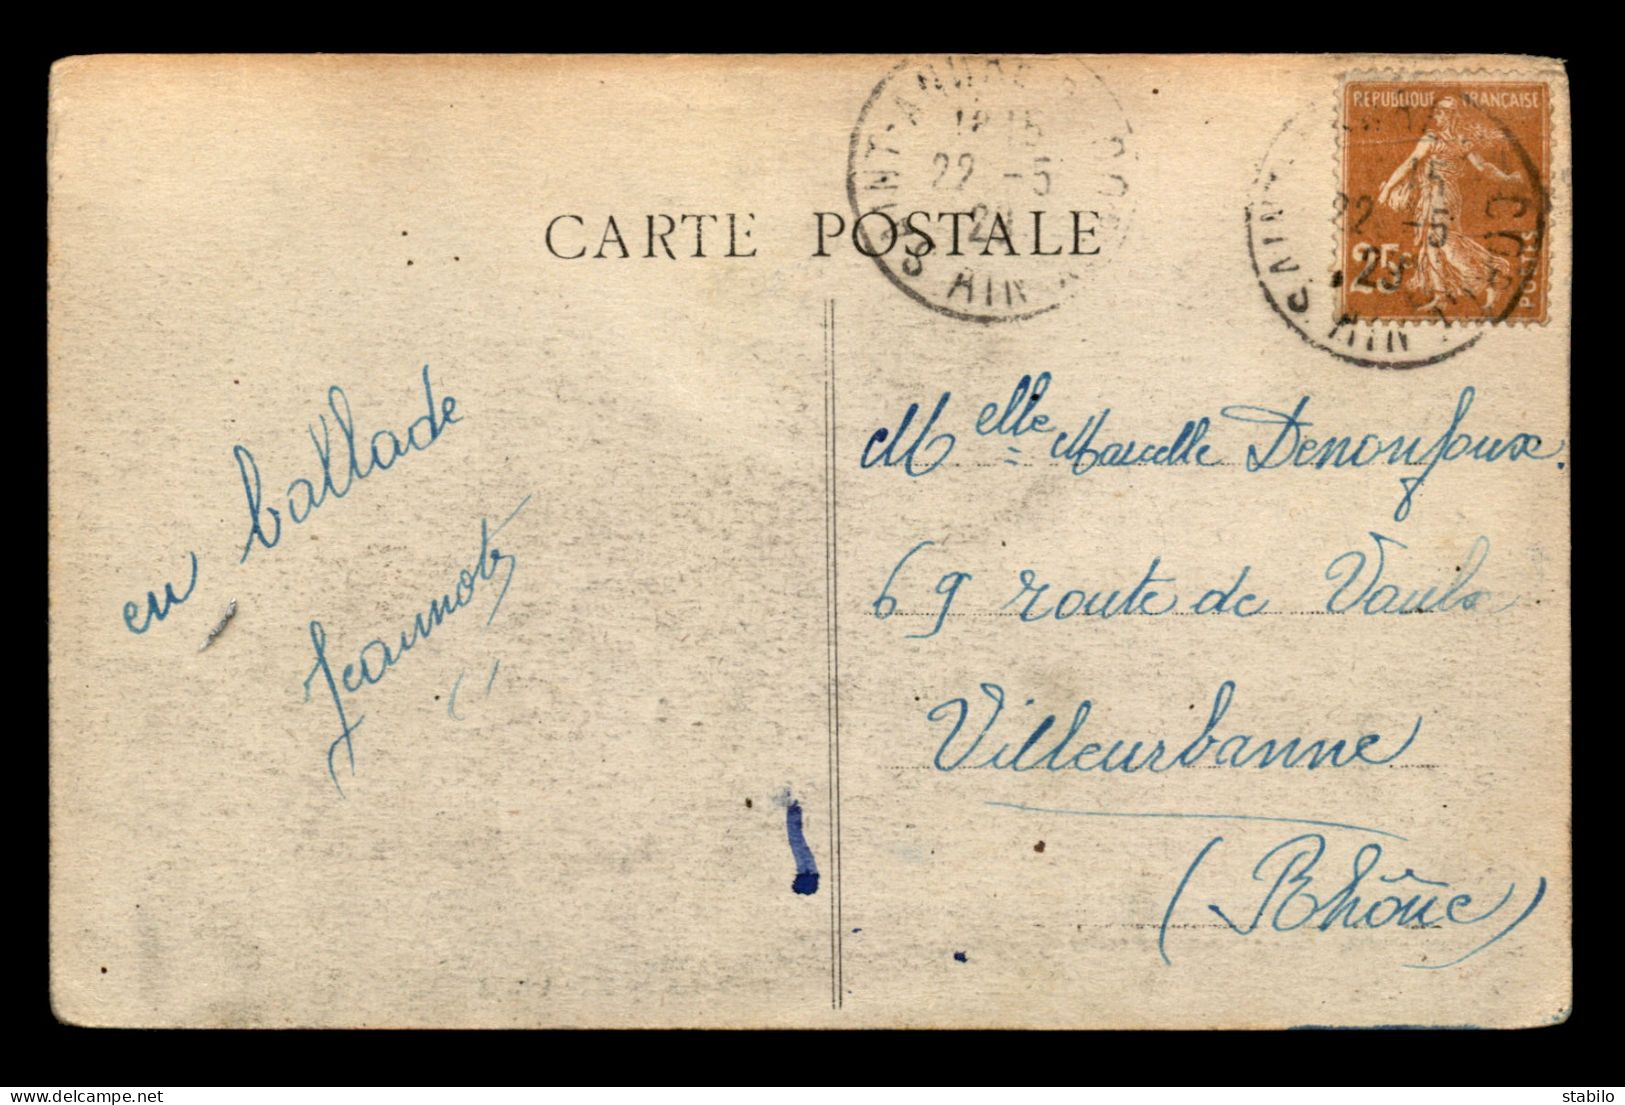 CARTE POSTALE
REPUBLIQUE FRANÇAISE
25c
POSTES
22 -5
29
AIN
22 -5
29
AIN
en ballade
Jeannot
Melle Marcelle Denonfoux.
69 route de Vaulx
Villeurbanne
(Rhône)
delcampe.net
stabilo